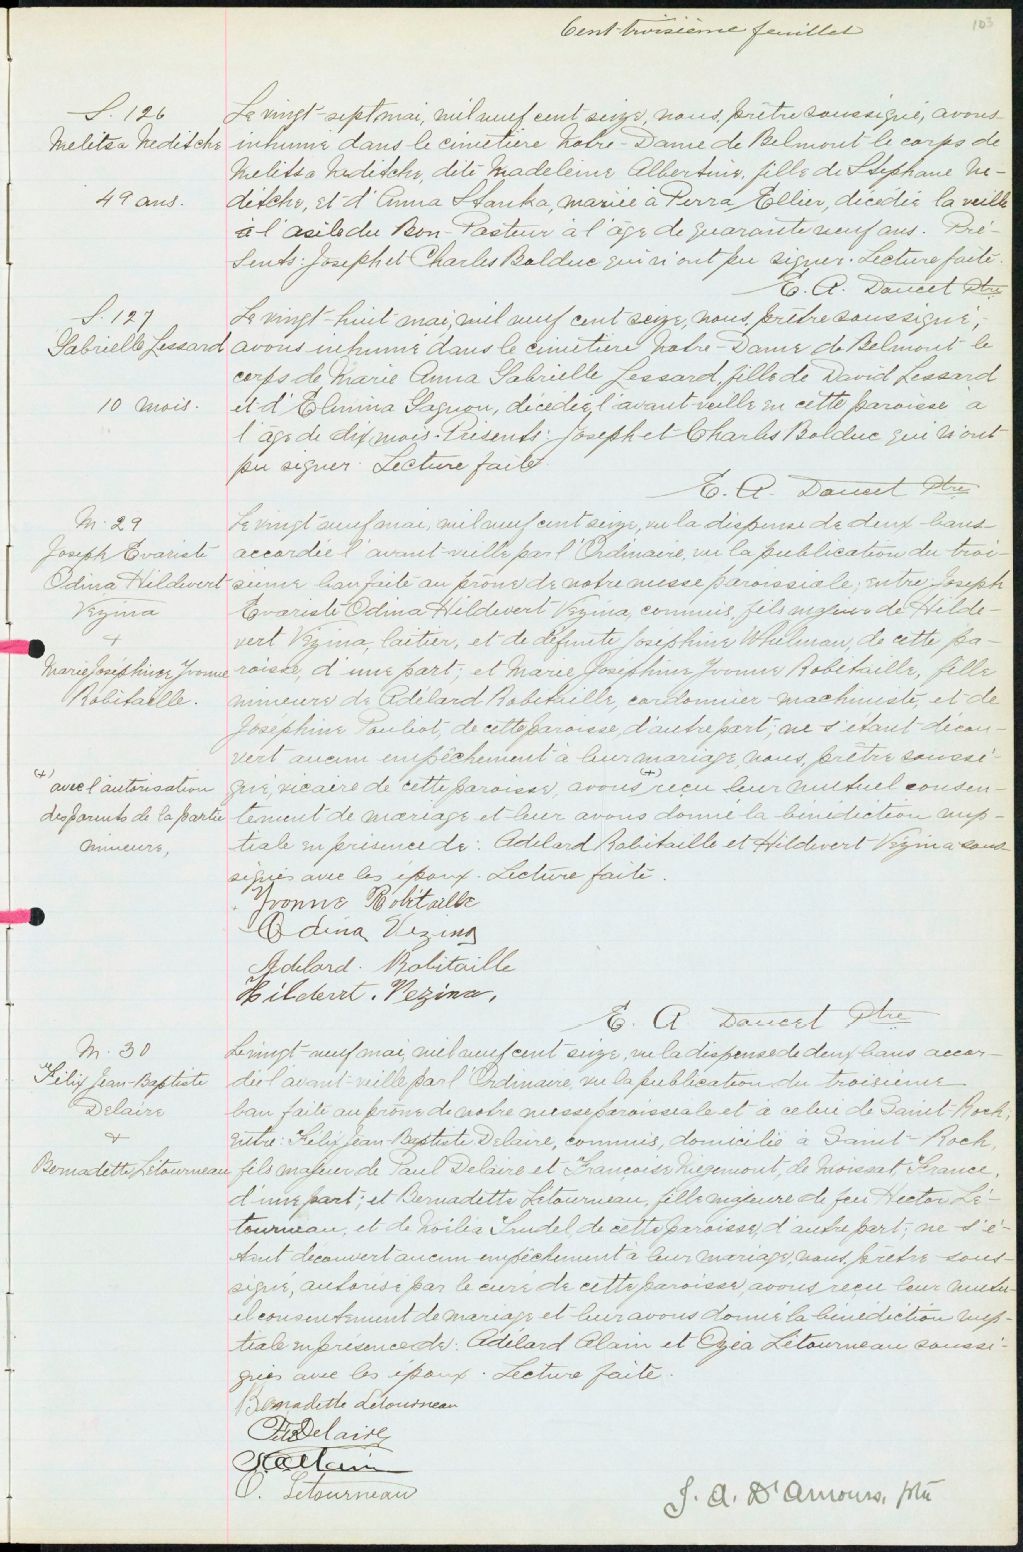 Cent-troisième feuillet
103
S. 126
Melitza Neditche
49 ans.
Le vingt-sept mai, mil neuf cent seize, nous, prêtre soussigné, avons
inhumé dans le cimetière Notre-Dame de Belmont le corps de
Melitza Neditche, dite Madeleine Albertine, fille de Stéphane Ne-
ditche, et d'Anna Stanka, mariée à Pierra Ellier, décédée la veille
à l'asile du Bon-Pasteur à l'âge de quarante neuf ans. Pré-
sents: Joseph et Charles Bolduc qui n'ont pu signer. Lecture faite.
E. A. Doucet Ptre
S. 127
Gabrielle Lessard
10 mois.
Le vingt-huit mai, mil neuf cent seize, nous, prêtre soussigné,
avons inhumé dans le cimetière Notre-Dame de Belmont le
corps de Marie Anna Gabrielle Lessard, fille de David Lessard
et d'Elmina Gagnon, décédée l'avant-veille en cette paroisse à
l'âge de dix mois. Présents: Joseph et Charles Bolduc qui n'ont
pu signer. Lecture faite.
E. A. Doucet Ptre
M. 29
Joseph Evariste
Odina Hildevert
Vezina
+
Marie Joséphine Yvonne
Robitaille.
(+) avec l'autorisation
des parents de la partie
mineure,
Le vingt-neuf mai, mil neuf cent seize, vu la dispense de deux bans
accordée l'avant-veille par l'Ordinaire, vu la publication du troi-
sième ban faite au prône de notre messe paroissiale; entre Joseph
Evariste Odina Hildevert Vezina, commis, fils majeur de Hilde-
vert Vezina, laitier, et de défunte Joséphine Whelman, de cette pa-
roisse, d'une part; et Marie Joséphine Yvonne Robitaille, fille
mineure de Adélard Robitaille, cordonnier-machiniste, et de
Joséphine Pouliot, de cette paroisse, d'autre part; ne s'étant décou-
vert aucun empêchement à leur mariage, nous, prêtre soussi-
gné, vicaire de cette paroisse, avons (+) reçu leur mutuel consen-
tement de mariage et leur avons donné la bénédiction nup-
tiale en présence de: Adélard Robitaille et Hildevert Vezina sous-
signés avec les époux. Lecture faite.
Yvonne Robitaille
Odina Vezina
Adelard. Robitaille
Hildevert. Vezina.
E. A. Doucet Ptre
M. 30
Félix Jean-Baptiste
Delaire
+
Bernadette Létourneau
Le vingt-neuf mai, mil neuf cent seize, vu la dispense de deux bans accor-
dée l'avant-veille par l'Ordinaire, vu la publication du troisième
ban faite au prône de notre messe paroissiale et à celui de Saint-Roch,
entre: Félix Jean-Baptiste Delaire, commis, domicilié à Saint-Roch,
fils majeur de Paul Delaire et Françoise Niegemont, de Moissat, France,
d'une part; et Bernadette Létourneau, fille majeure de feu Hector Lé-
tourneau, et de Noëlia Trudel, de cette paroisse, d'autre part; ne s'é-
tant découvert aucun empêchement à leur mariage, nous, prêtre sous-
signé, autorisé par le curé de cette paroisse, avons reçu leur mutu-
el consentement de mariage et leur avons donné la bénédiction nup-
tiale en présence de: Adélard Alain et Ozéa Létourneau soussi-
gnés avec les époux. Lecture faite.
Bernadette Létourneau
Delaire
Alain
O. Letourneau
J. A. D'Amours, ptre